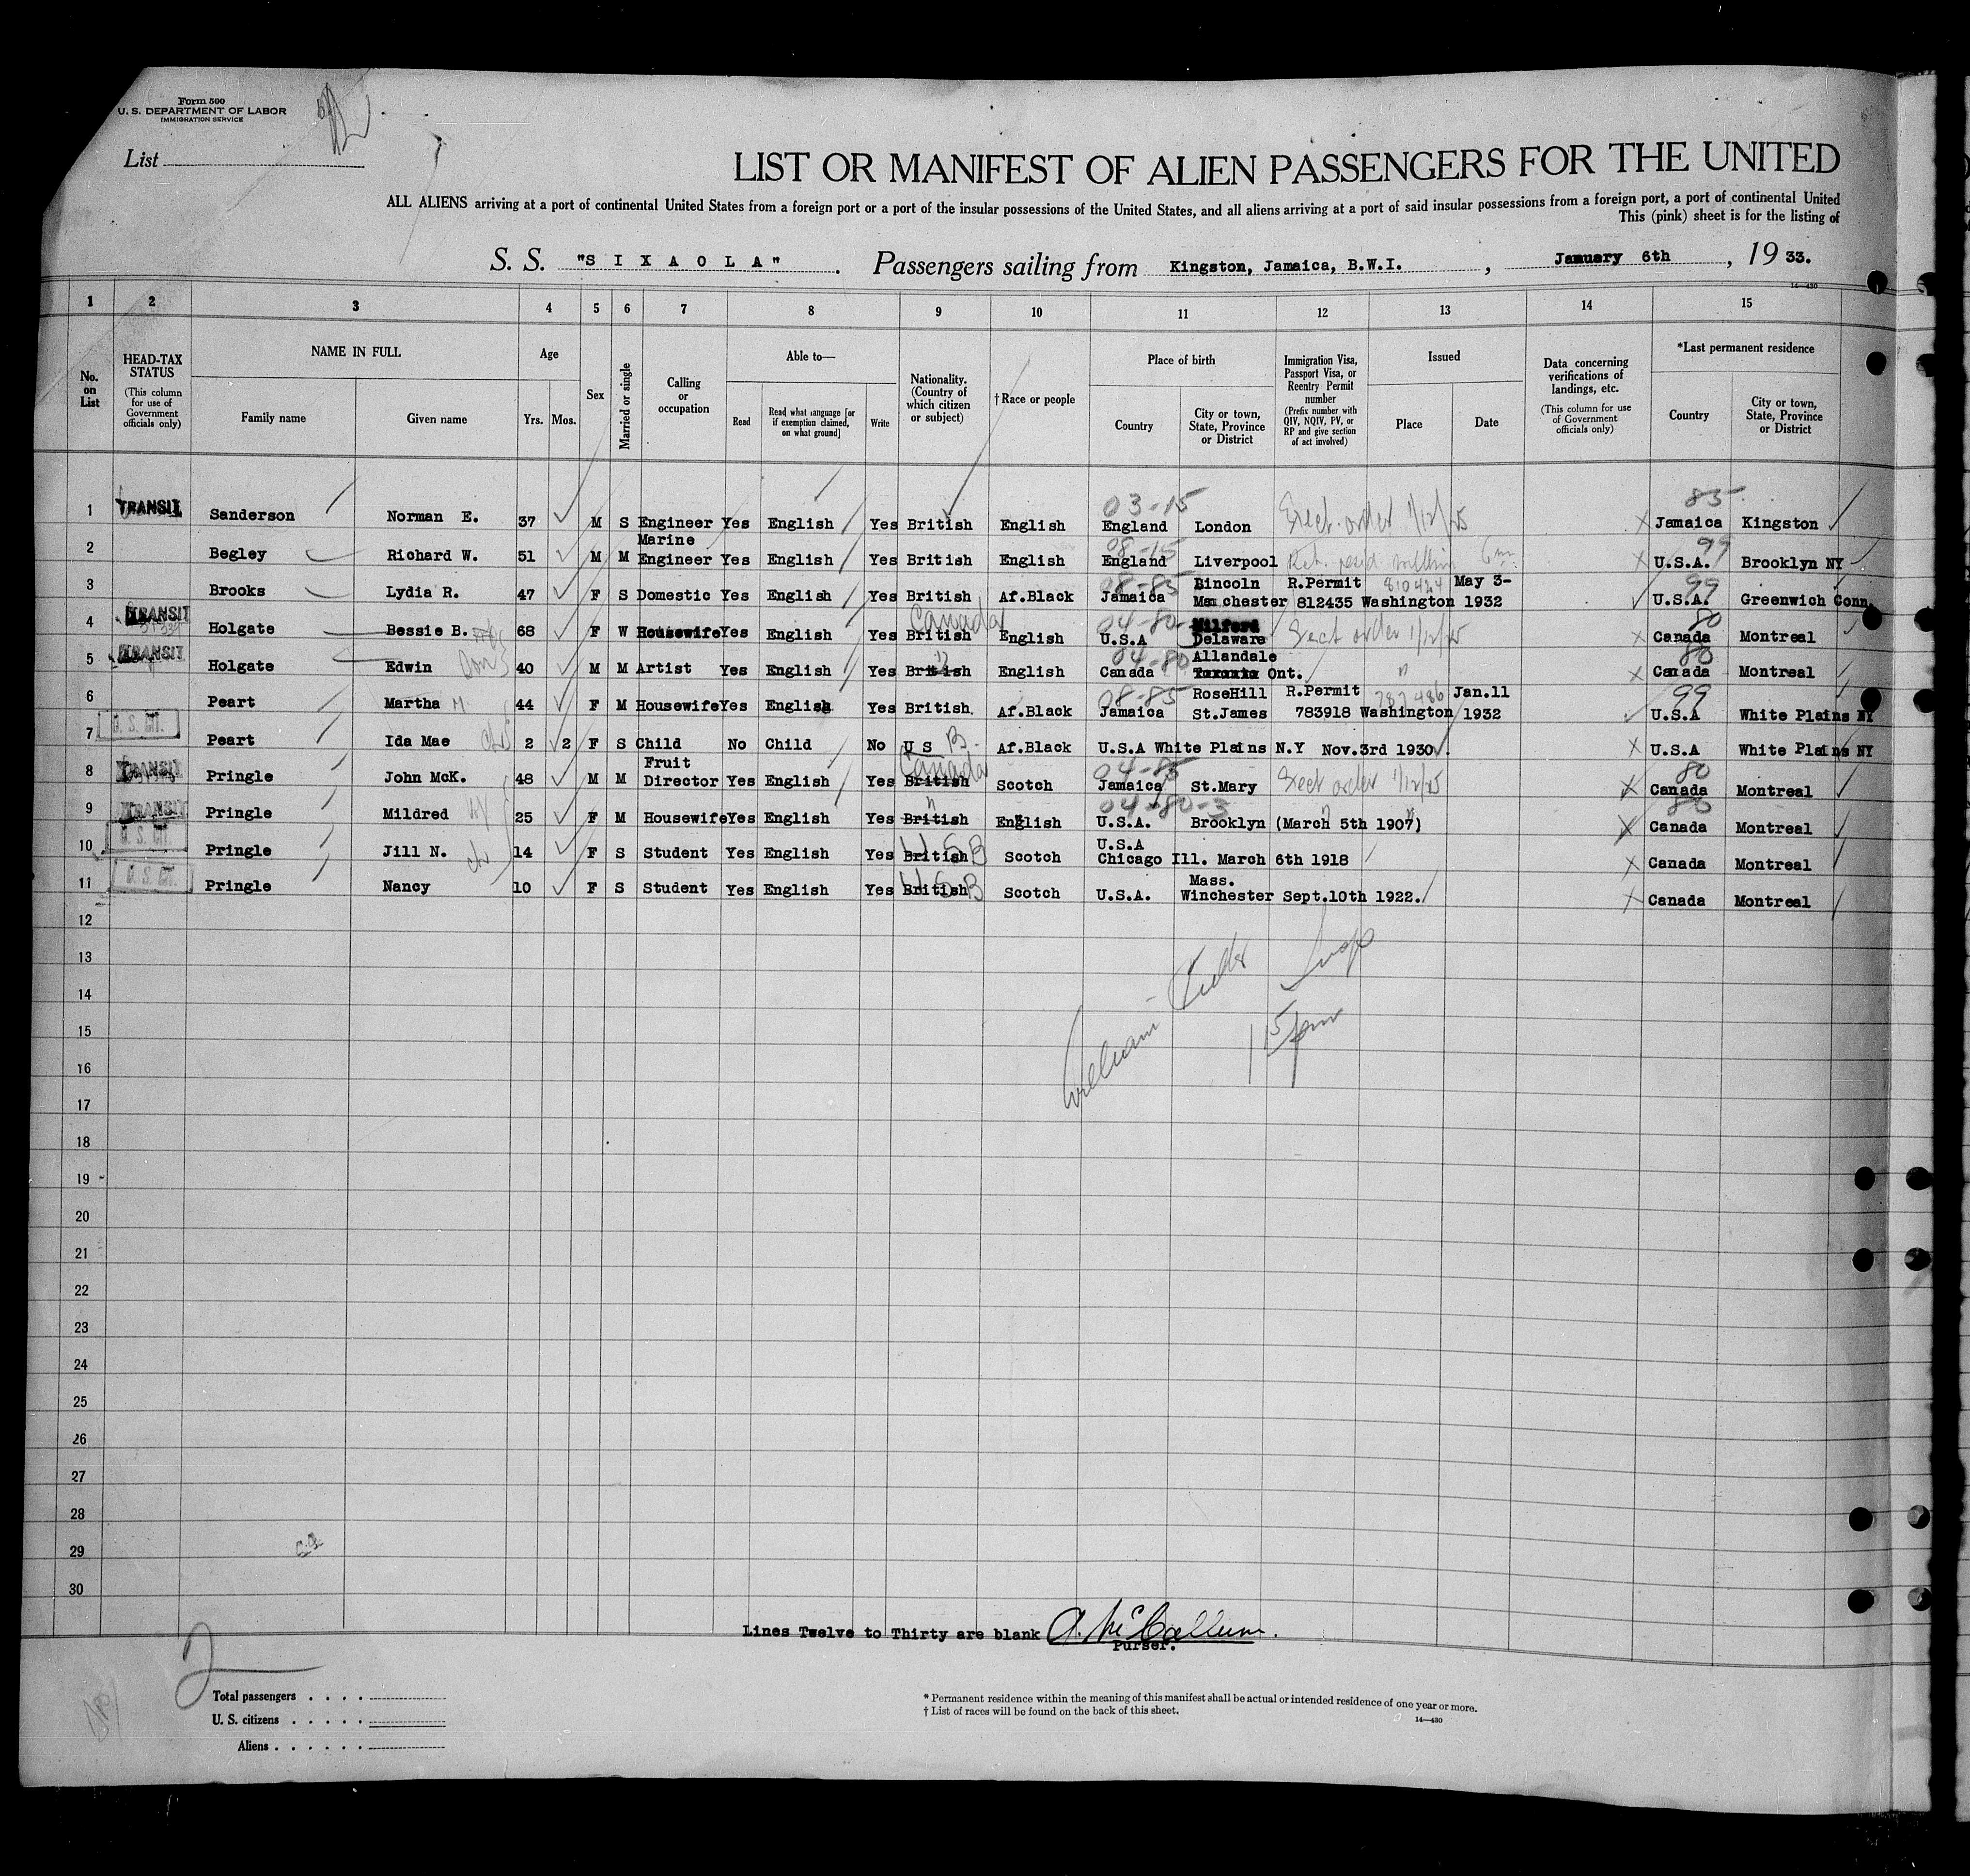 Form 500
U. S. DEPARTMENT OF LABOR
IMMIGRATION SERVICE
List
LIST OR MANIFEST OF ALIEN PASSENGERS FOR THE UNITED
ALL ALIENS arriving at a port of continental United States from a foreign port or a port of the insular possessions of the United States, and all aliens arriving at a port of said insular possessions from a foreign port, a port of continental United
This (pink) sheet is for the listing of
S. S. "SIXAOLA" . Passengers sailing from Kingston, Jamaica, B.W.I. , January 6th , 19 33.
14—430
1 2 3 4 5 6 7 8 9 10 11 12 13 14 15
No. on List
HEAD-TAX STATUS (This column for use of Government officials only)
NAME IN FULL
Family name Given name
Age
Yrs. Mos.
Sex
Married or single
Calling or occupation
Able to—
Read Read what language [or if exemption claimed, on what ground] Write
Nationality. (Country of which citizen or subject)
†Race or people
Place of birth
Country City or town, State, Province or District
Immigration Visa, Passport Visa, or Reentry Permit number (Prefix number with QIV, NQIV, PV, or RP and give section of act involved)
Issued
Place Date
Data concerning verifications of landings, etc. (This column for use of Government officials only)
*Last permanent residence
Country City or town, State, Province or District
03-15 85
1 TRANSIT Sanderson Norman E. 37 M S Engineer Yes English Yes British English England London Exect. order 1/12/25 Jamaica Kingston
Marine 08-15 99
2 Begley Richard W. 51 M M Engineer Yes English Yes British English England Liverpool U.S.A. Brooklyn NY
08-85 Lincoln R.Permit 810424 May 3- 99
3 Brooks Lydia R. 47 F S Domestic Yes English Yes British Af.Black Jamaica Manchester 812435 Washington 1932 U.S.A. Greenwich Conn.
TRANSIT Canada 04-80 Milford 80
4 Holgate Bessie B. 68 F W Housewife Yes English Yes British English U.S.A Delaware Exect order 1/12/25 Canada Montreal
TRANSIT " 04-80 Allandale 80
5 Holgate Edwin 40 M M Artist Yes English Yes British English Canada Toronto Ont. " Canada Montreal
08-85 RoseHill R.Permit 787486 Jan.11 99
6 Peart Martha M 44 F M Housewife Yes English Yes British. Af.Black Jamaica St.James 783918 Washington 1932 U.S.A White Plains NY
7 U. S. CIT. Peart Ida Mae 2 2 F S Child No Child No U S B. Af.Black U.S.A White Plains N.Y Nov.3rd 1930. U.S.A White Plains NY
Fruit Canada 04-85 80
8 TRANSIT Pringle John McK. 48 M M Director Yes English Yes British Scotch Jamaica St.Mary Exect order 1/12/25 Canada Montreal
" 04-80-3 " " 80
9 TRANSIT Pringle Mildred 25 F M Housewife Yes English Yes British English U.S.A. Brooklyn (March 5th 1907) Canada Montreal
U.S.A
10 U. S. CIT. Pringle Jill N. 14 F S Student Yes English Yes British USB Scotch Chicago Ill. March 6th 1918 Canada Montreal
Mass.
11 U. S. CIT. Pringle Nancy 10 F S Student Yes English Yes British USB Scotch U.S.A. Winchester Sept.10th 1922. Canada Montreal
12
13
14
William Insp
15
16
17
18
19
20
21
22
23
24
25
26
27
28
29
30
Lines Twelve to Thirty are blank A. McCallum.
Purser.
2
Total passengers . . . .
U. S. citizens . . . . .
Aliens . . . . . .
* Permanent residence within the meaning of this manifest shall be actual or intended residence of one year or more.
† List of races will be found on the back of this sheet.
14—430